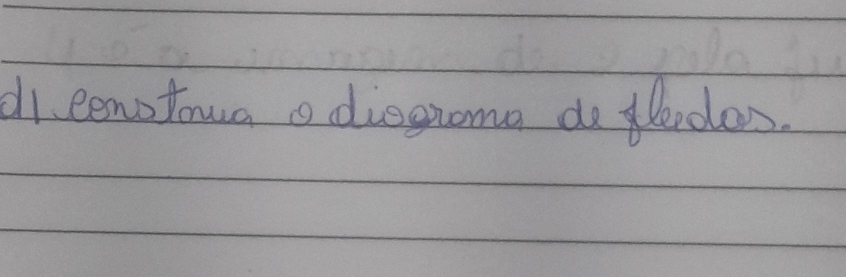 d) construa o diagrama de flechas.